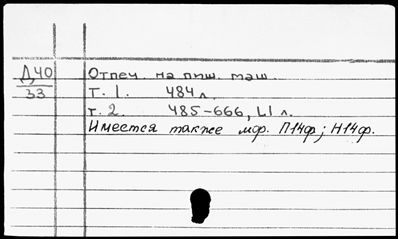 Д40
33
Отпеч. на пиш. маш.
т. 1. 484 л.
т. 2. 485-666, LI л.
Имеется также мф. П14ф; Н14ф.